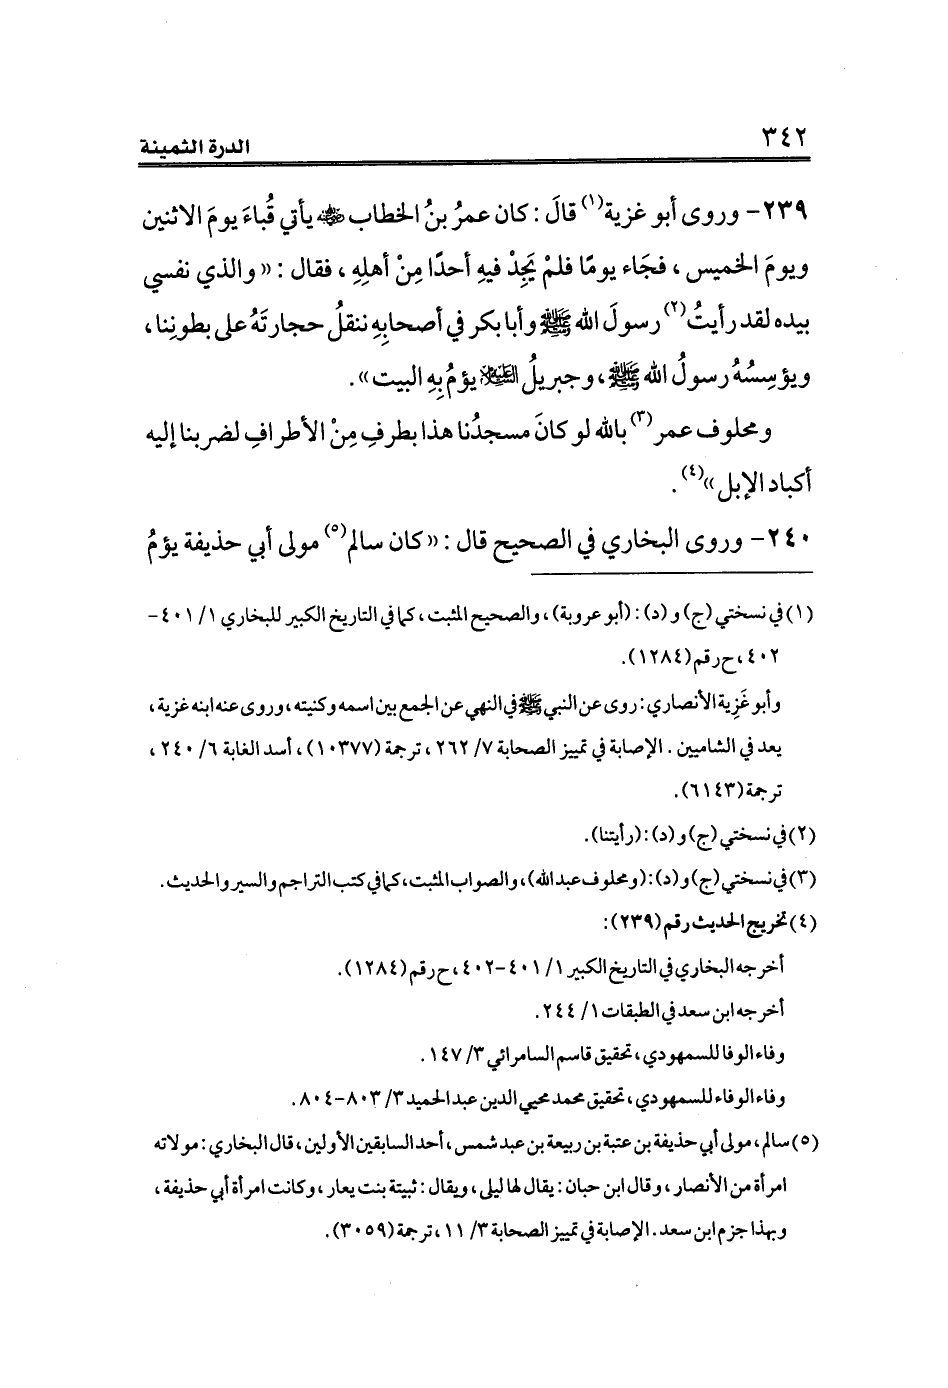 ٣٤٢ الدرة الثمينة
٢٣٩- وروى أبو غزية(١) قالَ: كان عمرُ بنُ الخطاب ﷺ يأتي قُباءَ يومَ الاثنين
ويومَ الخميس، فجَاء يومًا فلمْ يَجِدْ فيهِ أحدًا مِنْ أهلِهِ، فقال: «والذي نفسي
بيده لقد رأيتُ(٢) رسولَ الله ﷺ وأبا بكر في أصحابِهِ ننقلُ حجارتَهُ على بطونِنا،
ويؤسِسُهُ رسولُ الله ﷺ، وجبريلُ العَلَيْهِ يؤمُ بِهِ البيت».
ومحلوف عمر(٣) بالله لو كانَ مسجدُنا هذا بطرفٍ مِنْ الأطرافِ لضربنا إليه
أكباد الإبل»(٤).
٢٤٠- وروى البخاري في الصحيح قال: «كان سالم(٥) مولى أبي حذيفة يؤمُ
(١) في نسختي (ج) و(د): (أبو عروبة)، والصحيح المثبت، كما في التاريخ الكبير للبخاري ١/ ٤٠١-
٤٠٢، ح رقم (١٢٨٤).
وأبو غَزِية الأنصاري: روى عن النبي ﷺ في النهي عن الجمع بين اسمه وكنيته، وروى عنه ابنه غزية،
يعد في الشاميين. الإصابة في تمييز الصحابة ٧/ ٢٦٢، ترجمة (١٠٣٧٧)، أسد الغابة ٦/ ٢٤٠،
ترجمة (٦١٤٣).
(٢) في نسختي (ج) و(د): (رأيتنا).
(٣) في نسختي (ج) و(د): (ومحلوف عبد الله)، والصواب المثبت، كما في كتب التراجم والسير والحديث.
(٤) تخريج الحديث رقم (٢٣٩):
أخرجه البخاري في التاريخ الكبير ١/ ٤٠١-٤٠٢، ح رقم (١٢٨٤).
أخرجه ابن سعد في الطبقات ١/ ٢٤٤.
وفاء الوفا للسمهودي، تحقيق قاسم السامرائي ٣/ ١٤٧.
وفاء الوفاء للسمهودي، تحقيق محمد محيي الدين عبد الحميد ٣/ ٨٠٣-٨٠٤.
(٥) سالم، مولى أبي حذيفة بن عتبة بن ربيعة بن عبد شمس، أحد السابقين الأولين، قال البخاري: مولاته
امرأة من الأنصار، وقال ابن حبان: يقال لها ليلى، ويقال: ثبيتة بنت يعار، وكانت امرأة أبي حذيفة،
وبهذا جزم ابن سعد. الإصابة في تمييز الصحابة ٣/ ١١، ترجمة (٣٠٥٩).